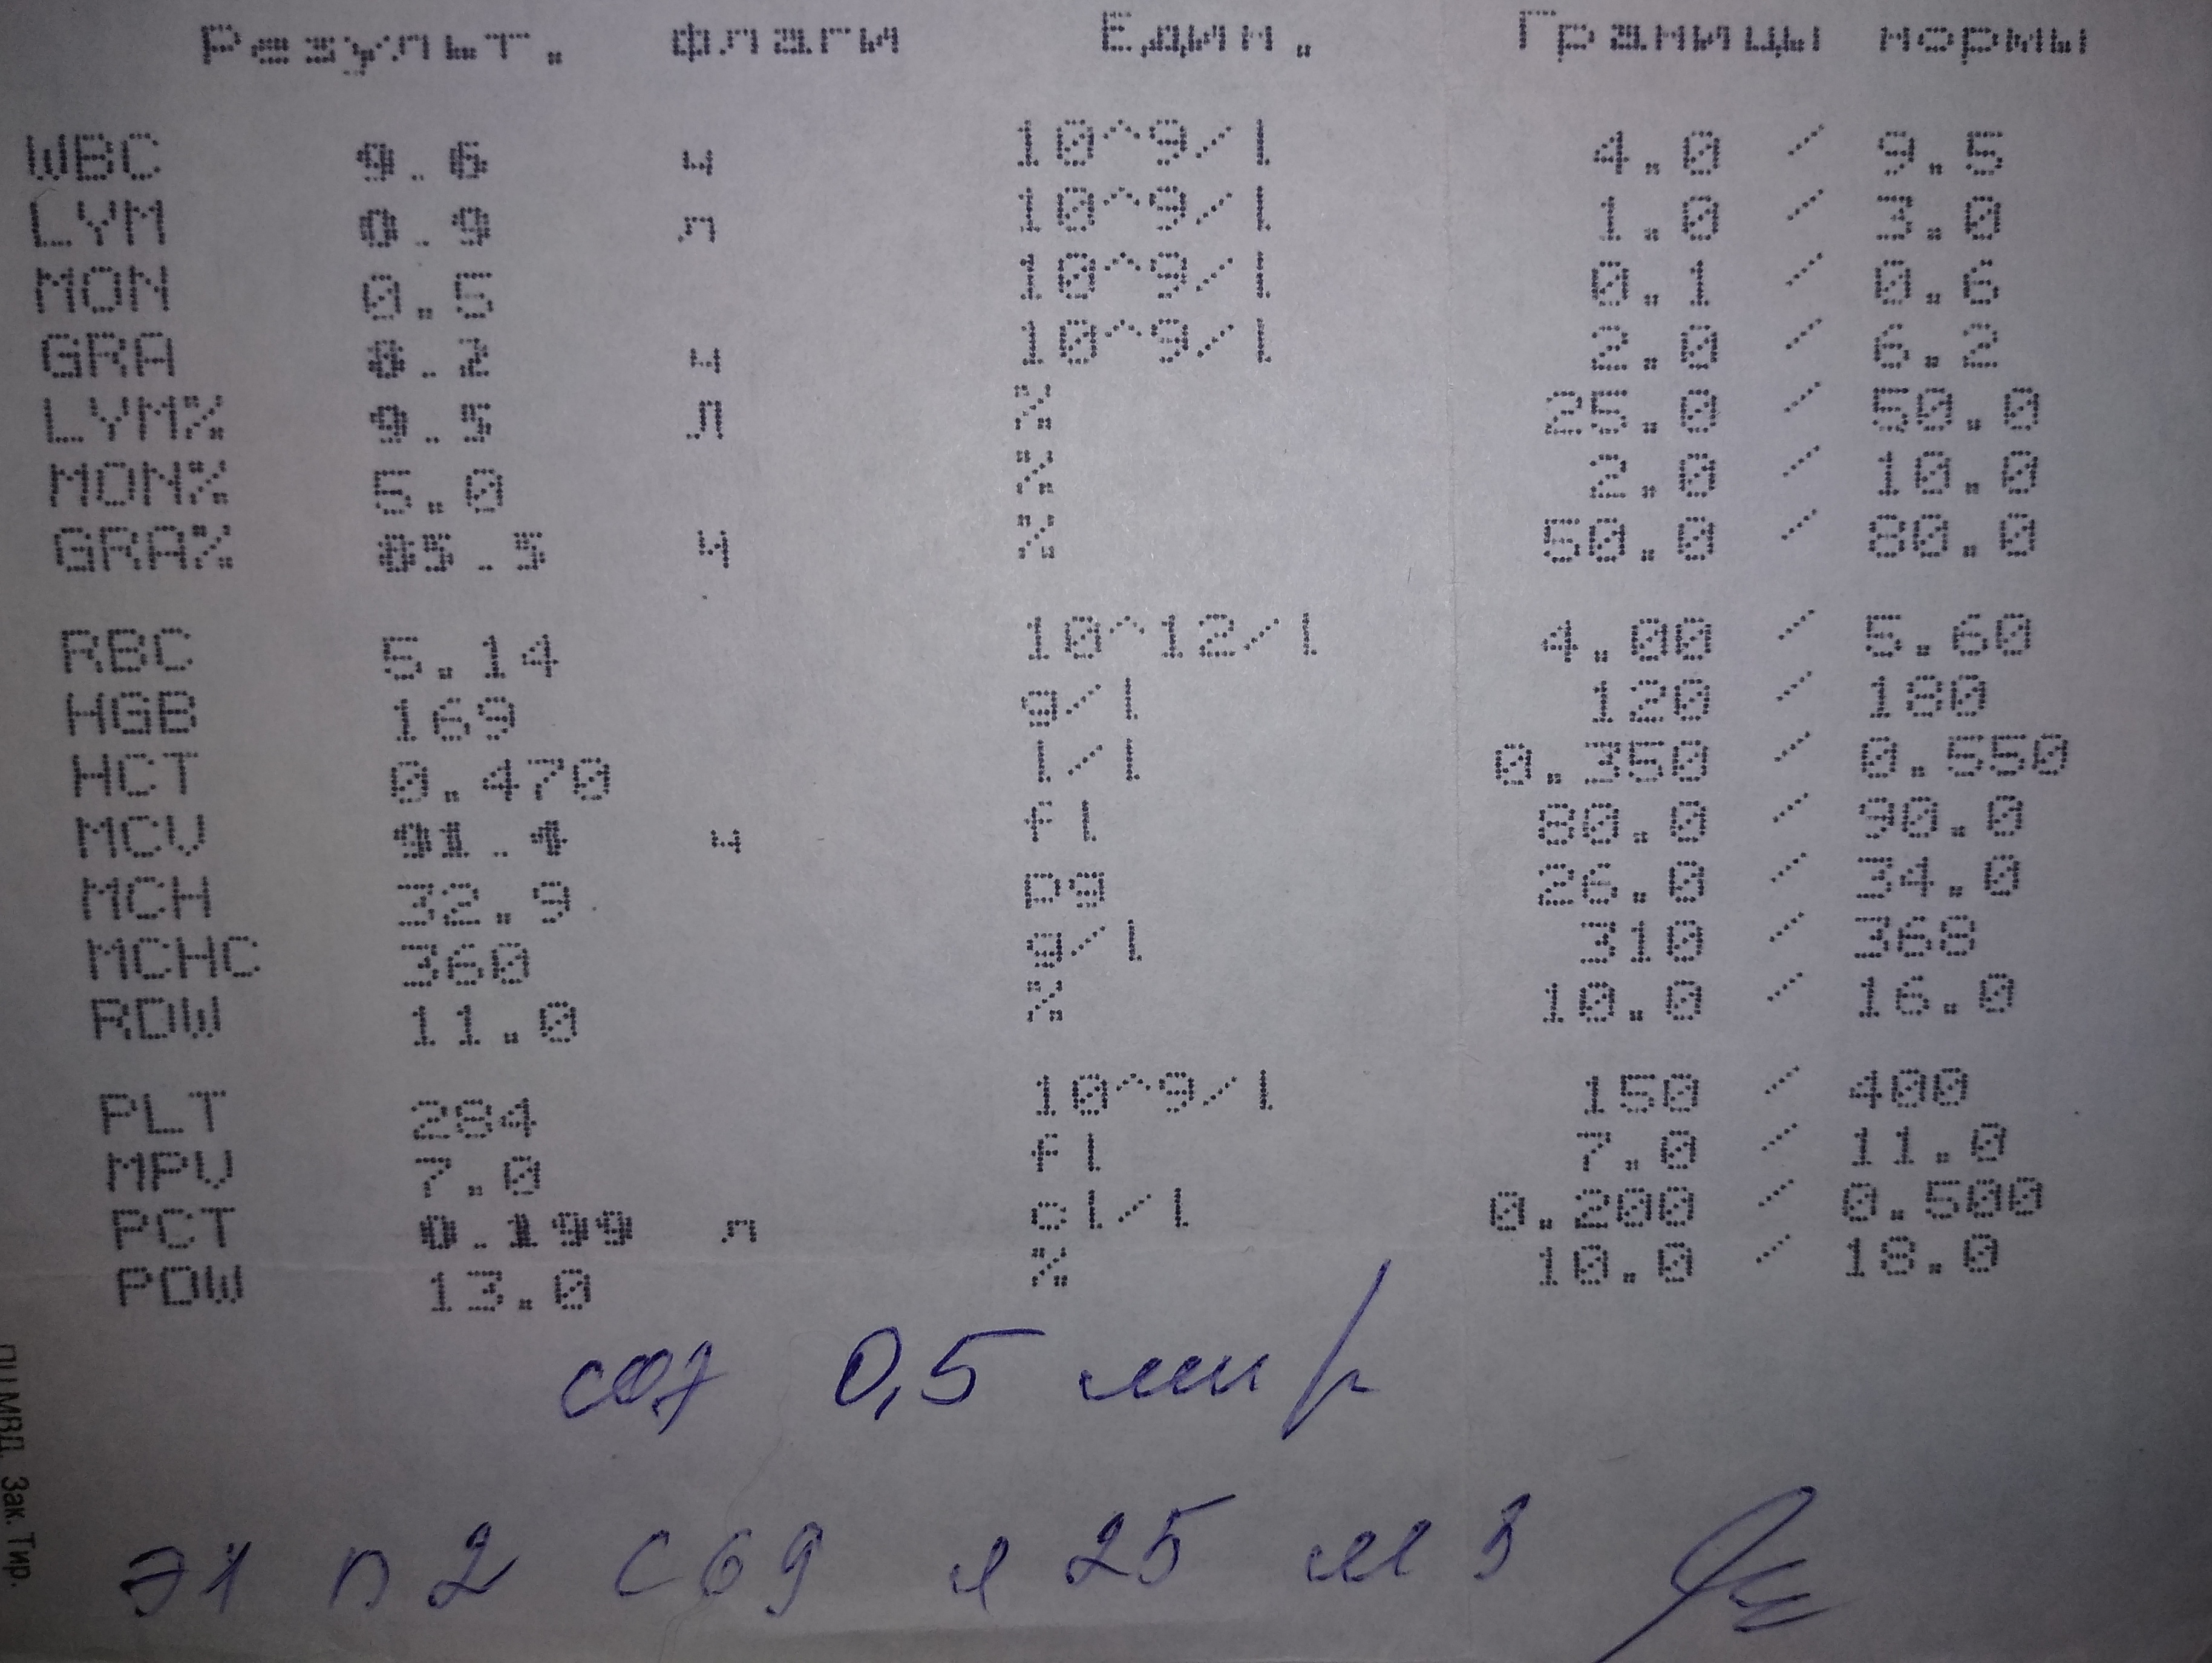 Результ. Флаги Един. Границы нормы
WBC 9.6 10^9/l 4.0 / 9.5
LYM 0.9 10^9/l 1.0 / 3.0
MON 0.5 10^9/l 0.1 / 0.6
GRA 8.2 10^9/l 2.0 / 6.2
LYM% 9.5 % 25.0 / 50.0
MON% 5.0 % 2.0 / 10.0
GRA% 85.5 % 50.0 / 80.0
RBC 5.14 10^12/l 4.00 / 5.60
HGB 169 g/l 120 / 180
HCT 0.470 l/l 0.350 / 0.550
MCV 91.4 fl 80.0 / 90.0
MCH 32.9 pg 26.0 / 34.0
MCHC 360 g/l 310 / 360
RDW 11.0 % 10.0 / 16.0
PLT 284 10^9/l 150 / 400
MPV 7.0 fl 7.0 / 11.0
PCT 0.199 cl/l 0.200 / 0.500
PDW 13.0 % 10.0 / 18.0
СОЭ 0,5 мм/
Э1 п2 С69 л25 м3
МВД. Зак. Тир.